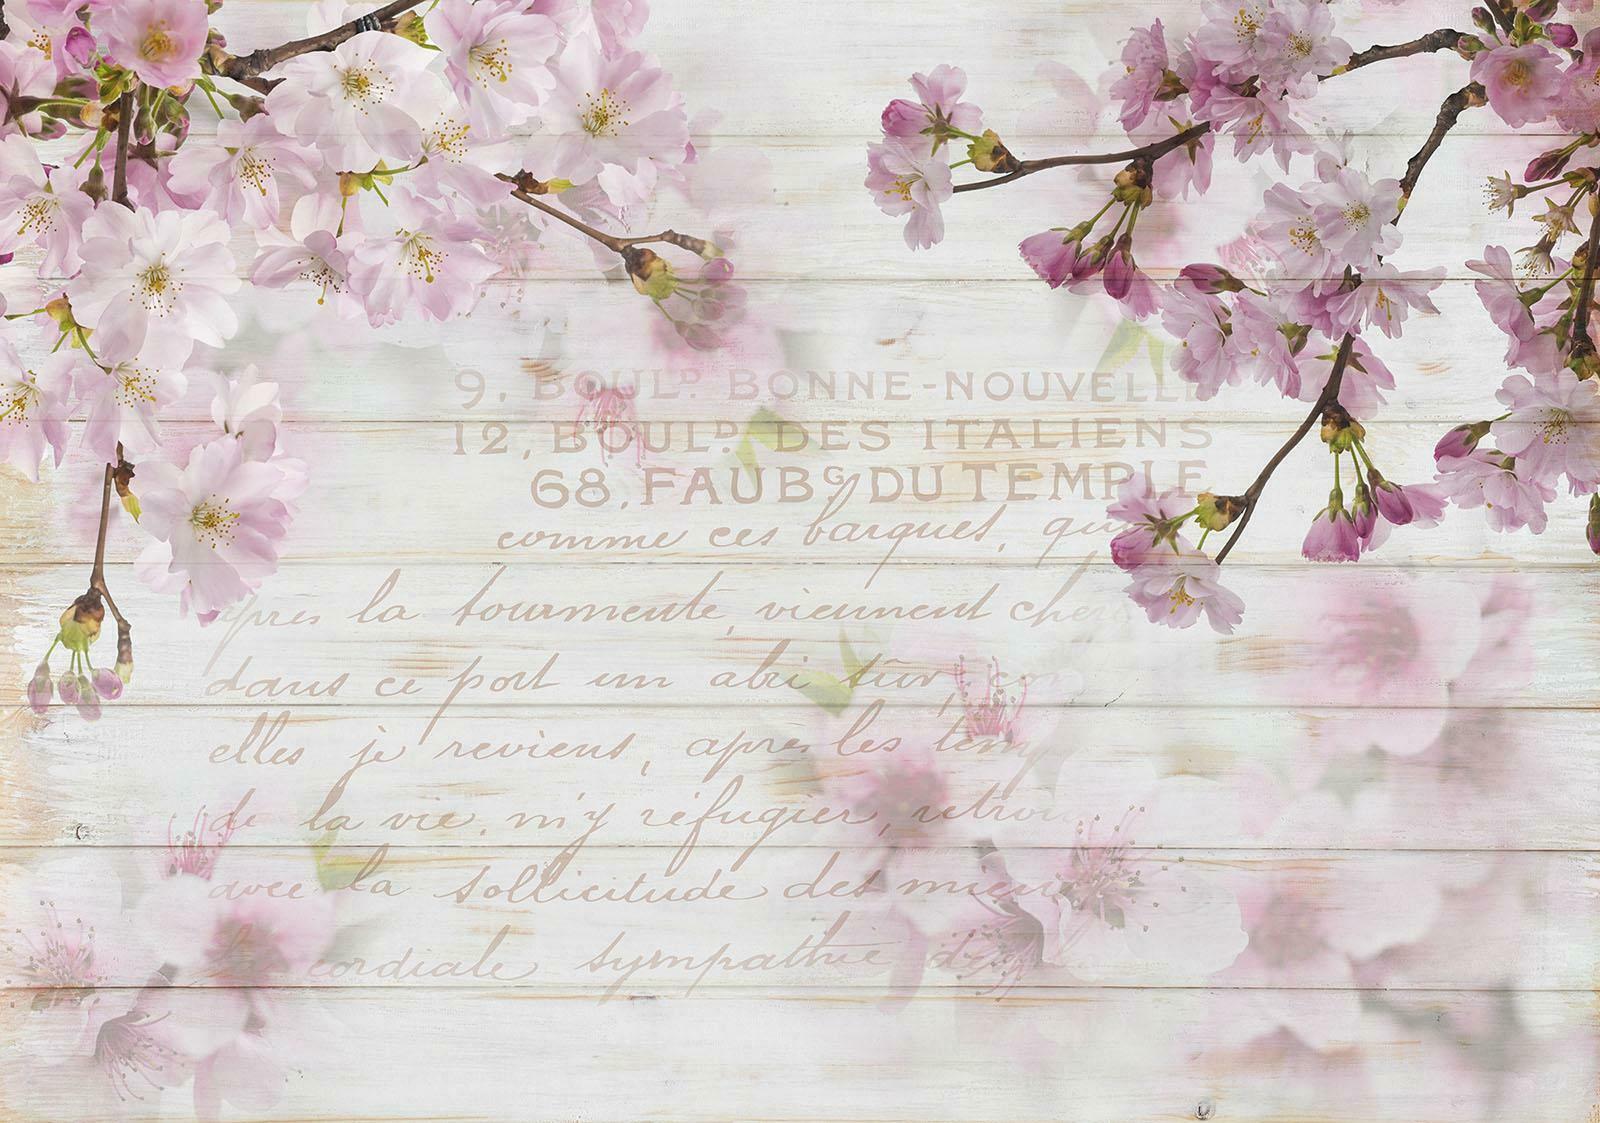 9, BOULD. BONNE-NOUVELLE
12, BOULD. DES ITALIENS
68, FAUBG. DU TEMPLE
comme ces barques, qui
apres la tourmente, viennent cher
dans ce port un abri sûr, com
elles je reviens, apres les temp
de la vie, m'y réfugier, retrou
avec la sollicitude des miens
la cordiale sympathie de